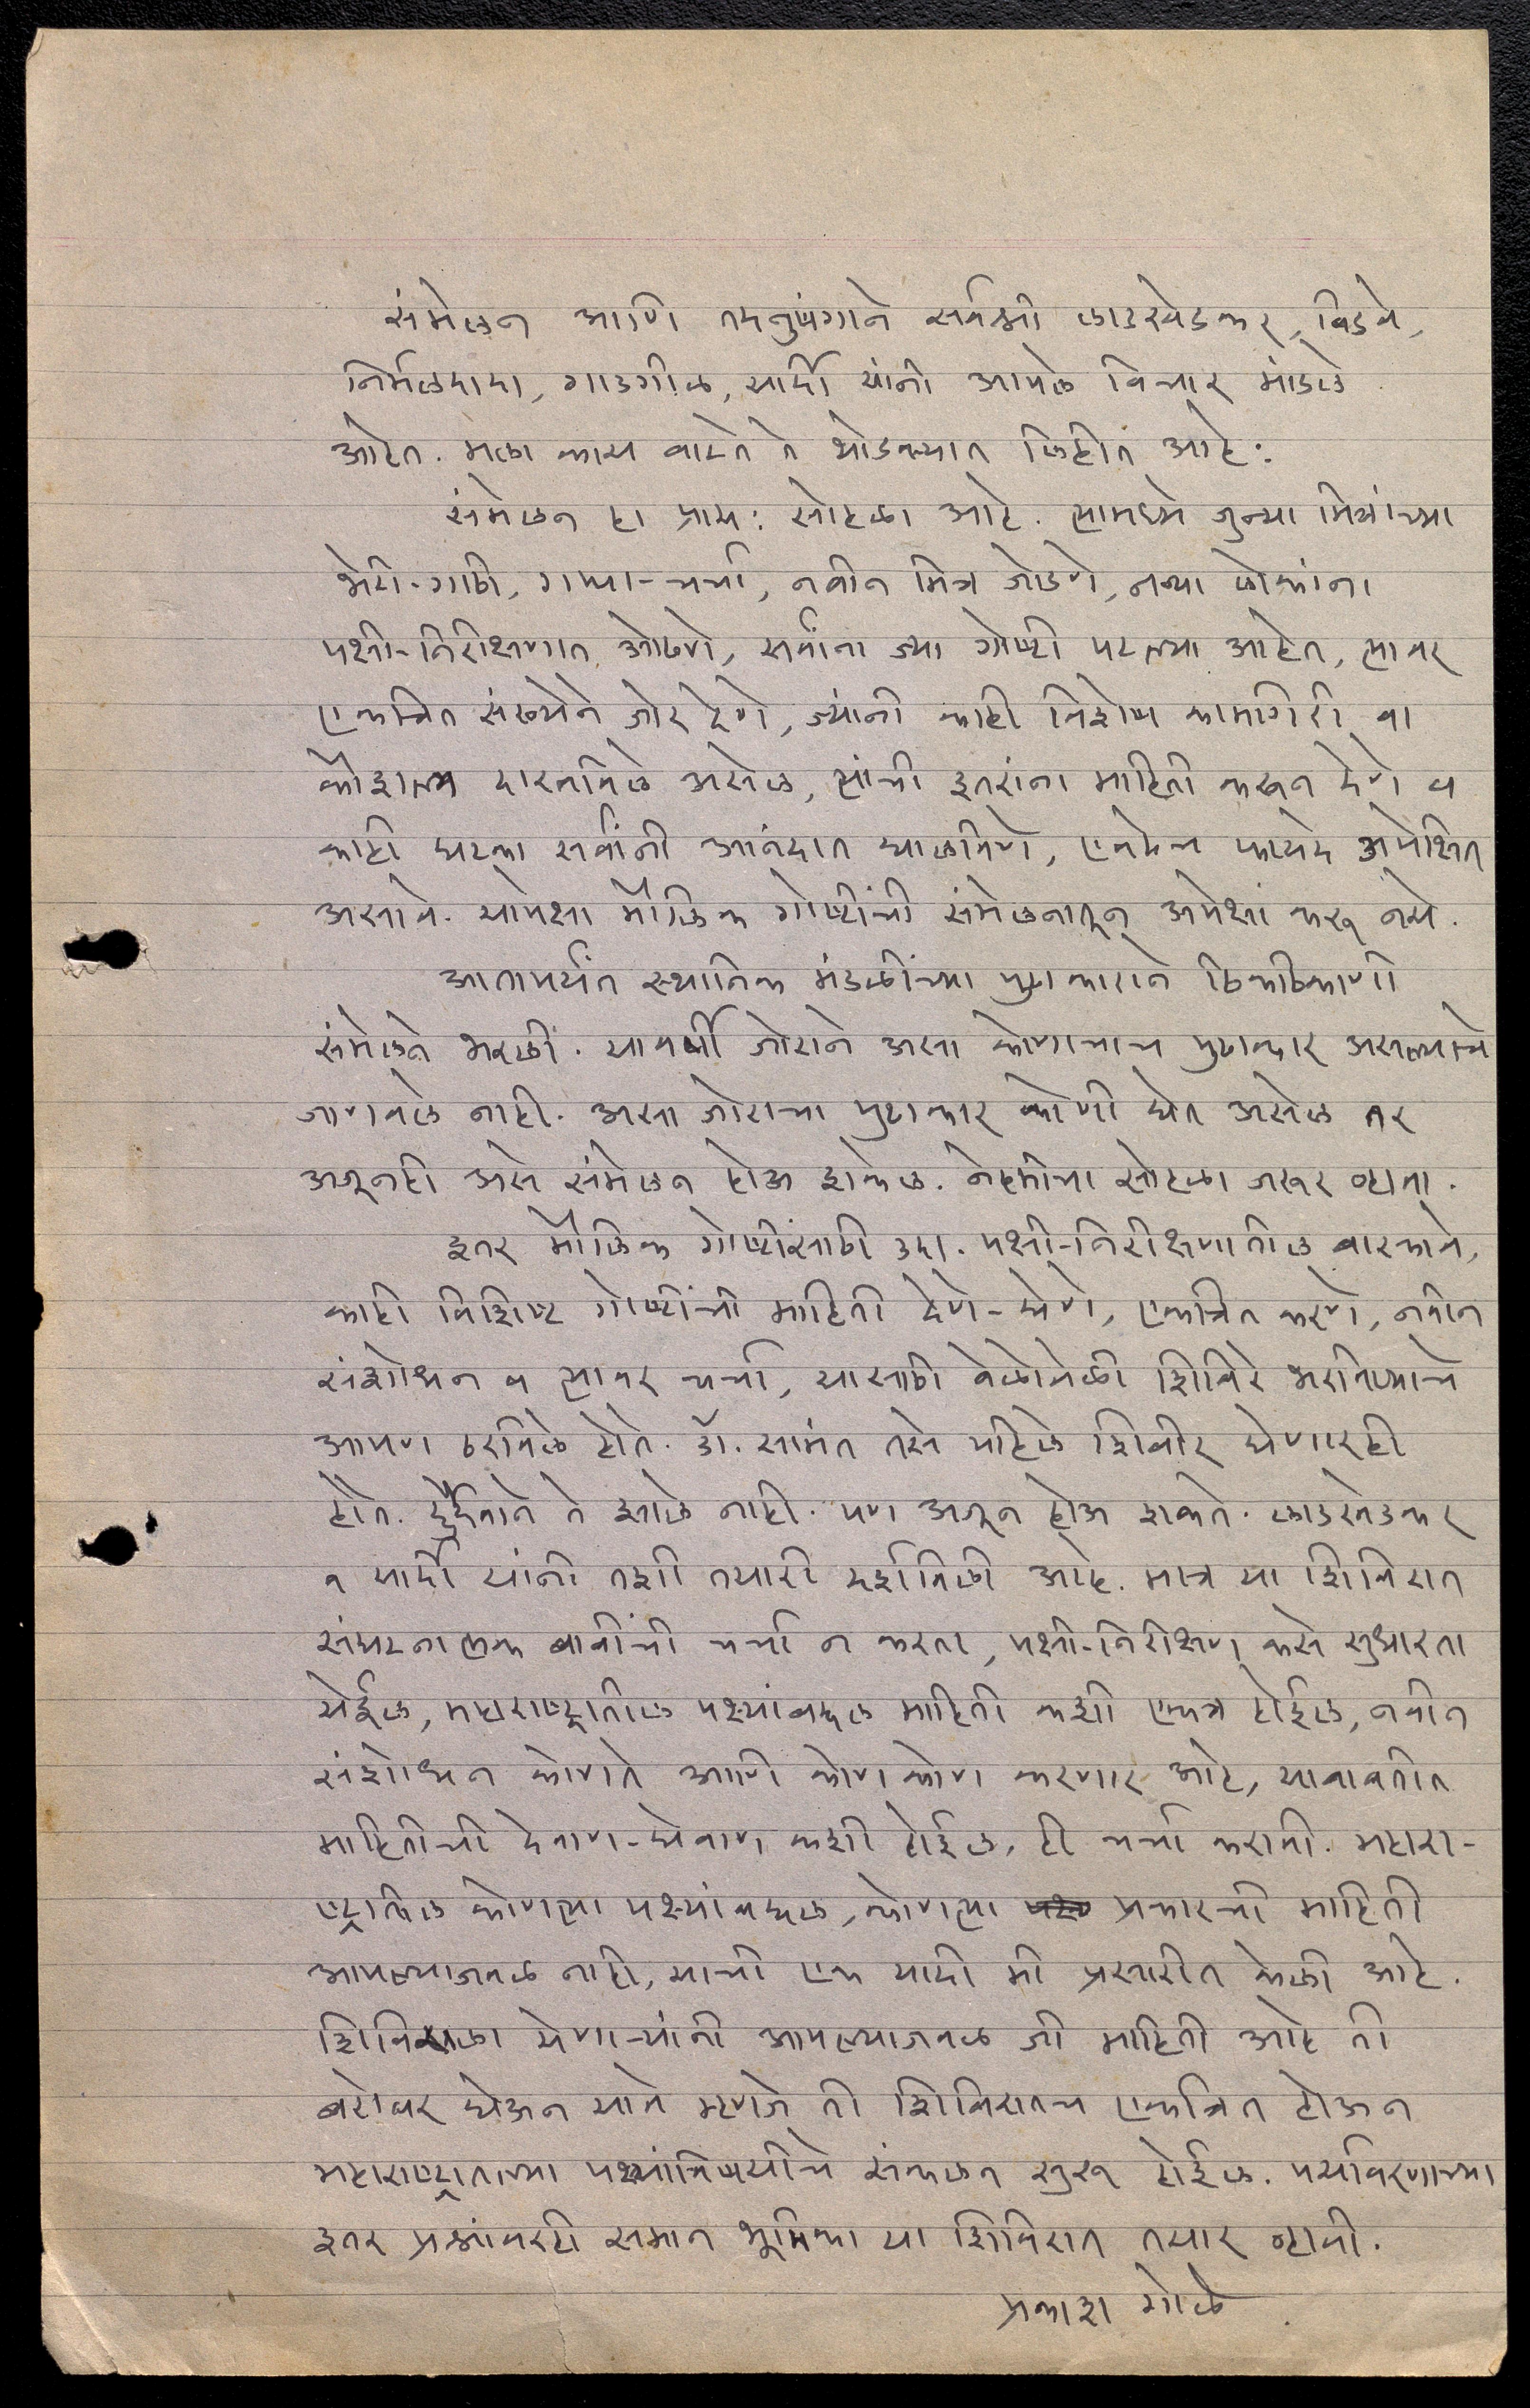 संमेलन आणि तदनुषंगाने सर्वश्री लाडखेडकर, विडवे,
निर्मळदादा, गाडगीळ, यार्दी यांनी आपले विचार मांडले
आहेत. मला काय वाटते ते थोडक्यात लिहीत आहे:
संमेलन हा प्राय: सोहळा आहे. त्यामध्ये जुन्या मित्रांच्या
भेटी-गाठी, गप्पा-चर्चा, नवीन मित्र जोडणे, नव्या लोकांना
पक्षी-निरीक्षणात ओढणे, सर्वांना ज्या गोष्टी पटल्या आहेत, त्यावर
एकत्रित संख्येने जोर देणे, ज्यांनी काही विशेष कामगिरी वा
कौशल्य दाखविले असेल, त्यांची इतरांना माहिती करून देणे व
काही घटका सर्वांनी आनंदात घालविणे, एवढेच फायदे अपेक्षित
असावे. यापेक्षा मौलिक गोष्टींची संमेलनातून अपेक्षा करू नये.
आतापर्यंत स्थानिक मंडळींच्या पुढाकाराने ठिकठिकाणी
संमेलने भरली. यावर्षी जोराने असा कोणाचाच पुढाकार असल्याचे
जाणवले नाही. असा जोराचा पुढाकार कोणी घेत असेल तर
अजूनही असे संमेलन होऊ शकेल. नेहमीचा सोहळा जरूर व्हावा.
इतर मौलिक गोष्टींसाठी उदा. पक्षी-निरीक्षणातील बारकावे,
काही विशिष्ट गोष्टींची माहिती देणे-घेणे, एकत्रित करणे, नवीन
संशोधन व त्यावर चर्चा, यासाठी वेळोवेळी शिबिरे भरविण्याचे
आपण ठरविले होते. डॉ. सामंत तसे पहिले शिबीर घेणारही
होते. दुर्दैवाने ते झाले नाही. पण अजून होऊ शकते. लाडखेडकर
व यार्दी यांनी तशी तयारी दर्शविली आहे. मात्र या शिबिरात
संघटनात्मक बाबींची चर्चा न करता, पक्षी-निरीक्षण कसे सुधारता
येईल, महाराष्ट्रातील पक्ष्यांबद्दल माहिती कशी एकत्र होईल, नवीन
संशोधन कोणते आणि कोण कोण करणार आहे, याबाबतीत
माहितीची देवाण-घेवाण कशी होईल, ही चर्चा करावी. महारा-
ष्ट्रातील कोणत्या पक्ष्यांबद्दल, कोणत्या प्रकारची माहिती
आपल्याजवळ नाही, याची एक यादी मी प्रसारीत केली आहे.
शिबिराला येणाऱ्यांनी आपल्याजवळ जी माहिती आहे ती
बरोबर घेऊन यावे म्हणजे ती शिबिरातच एकत्रित होऊन
महाराष्ट्रातल्या पक्ष्यांविषयीचे संकलन सुरू होईल. पर्यावरणाच्या
इतर प्रश्नांवरही समान भूमिका या शिबिरात तयार व्हावी.
प्रकाश गोळे